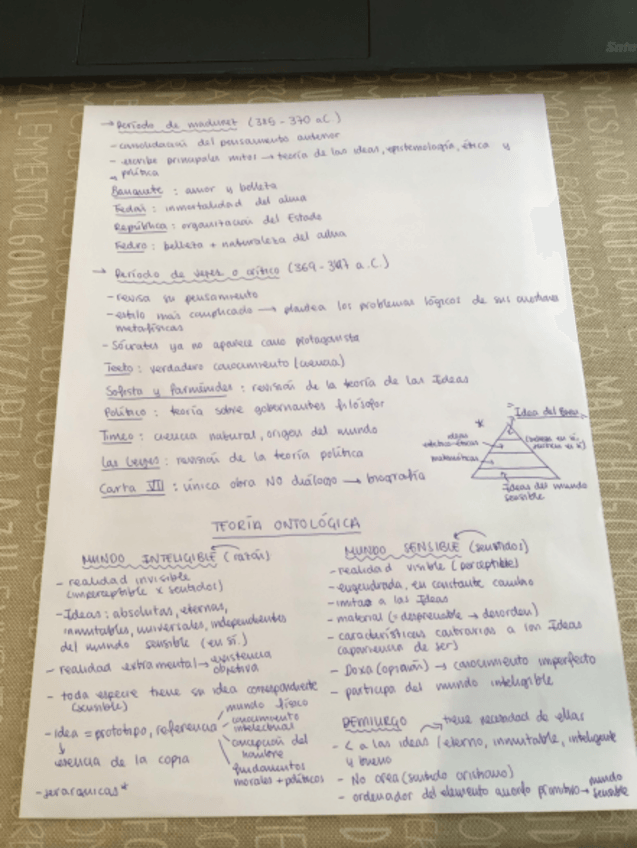 → Período de madurez (385 - 370 a.C.)
- consolidación del pensamiento anterior
- escribe principales mitos → teoría de las ideas, epistemología, ética y
política
Banquete : amor y belleza
Fedón : inmortalidad del alma
República : organización del Estado
Fedro : belleza + naturaleza del alma
→ Período de vejez o crítico (369 - 347 a.C.)
- revisa su pensamiento
- estilo más complicado → plantea los problemas lógicos de sus
metafísicas
- Sócrates ya no aparece como protagonista
Teeto : verdadero conocimiento (ciencia)
Sofista y Parménides : revisión de la teoría de las Ideas
Político : teoría sobre gobernantes filósofos
Timeo : ciencia natural, origen del mundo
Las Leyes : revisión de la teoría política
Carta VII : única obra NO diálogo → biografía
*
Idea del Bien
ideas
matemáticas
Ideas del mundo
sensible
TEORÍA ONTOLÓGICA
MUNDO INTELIGIBLE (razón)
- realidad invisible
(imperceptible x sentidos)
- Ideas : absolutas, eternas,
inmutables, universales, independientes
del mundo sensible (en sí)
- realidad extramental → existencia
objetiva
- toda especie tiene su idea correspondiente
(sensible)
- idea = prototipo, referencia
mundo físico
conocimiento
intelectual
concepción del
hombre
fundamentos
morales + políticos
↓
esencia de la copia
- jerárquicas*
MUNDO SENSIBLE (sentidos)
- realidad visible (perceptible)
- engendrada, en constante cambio
- imita a las Ideas
- material (= despreciable → desorden)
- características contrarias a las Ideas
(apariencia de ser)
- Doxa (opinión) → conocimiento imperfecto
- participa del mundo inteligible
DEMIURGO
→ tiene necesidad de ellas
- < a las ideas (eterno, inmutable, inteligente
y bueno
- No crea (sentido cristiano)
- ordenador del elemento amorfo primitivo → mundo
sensible